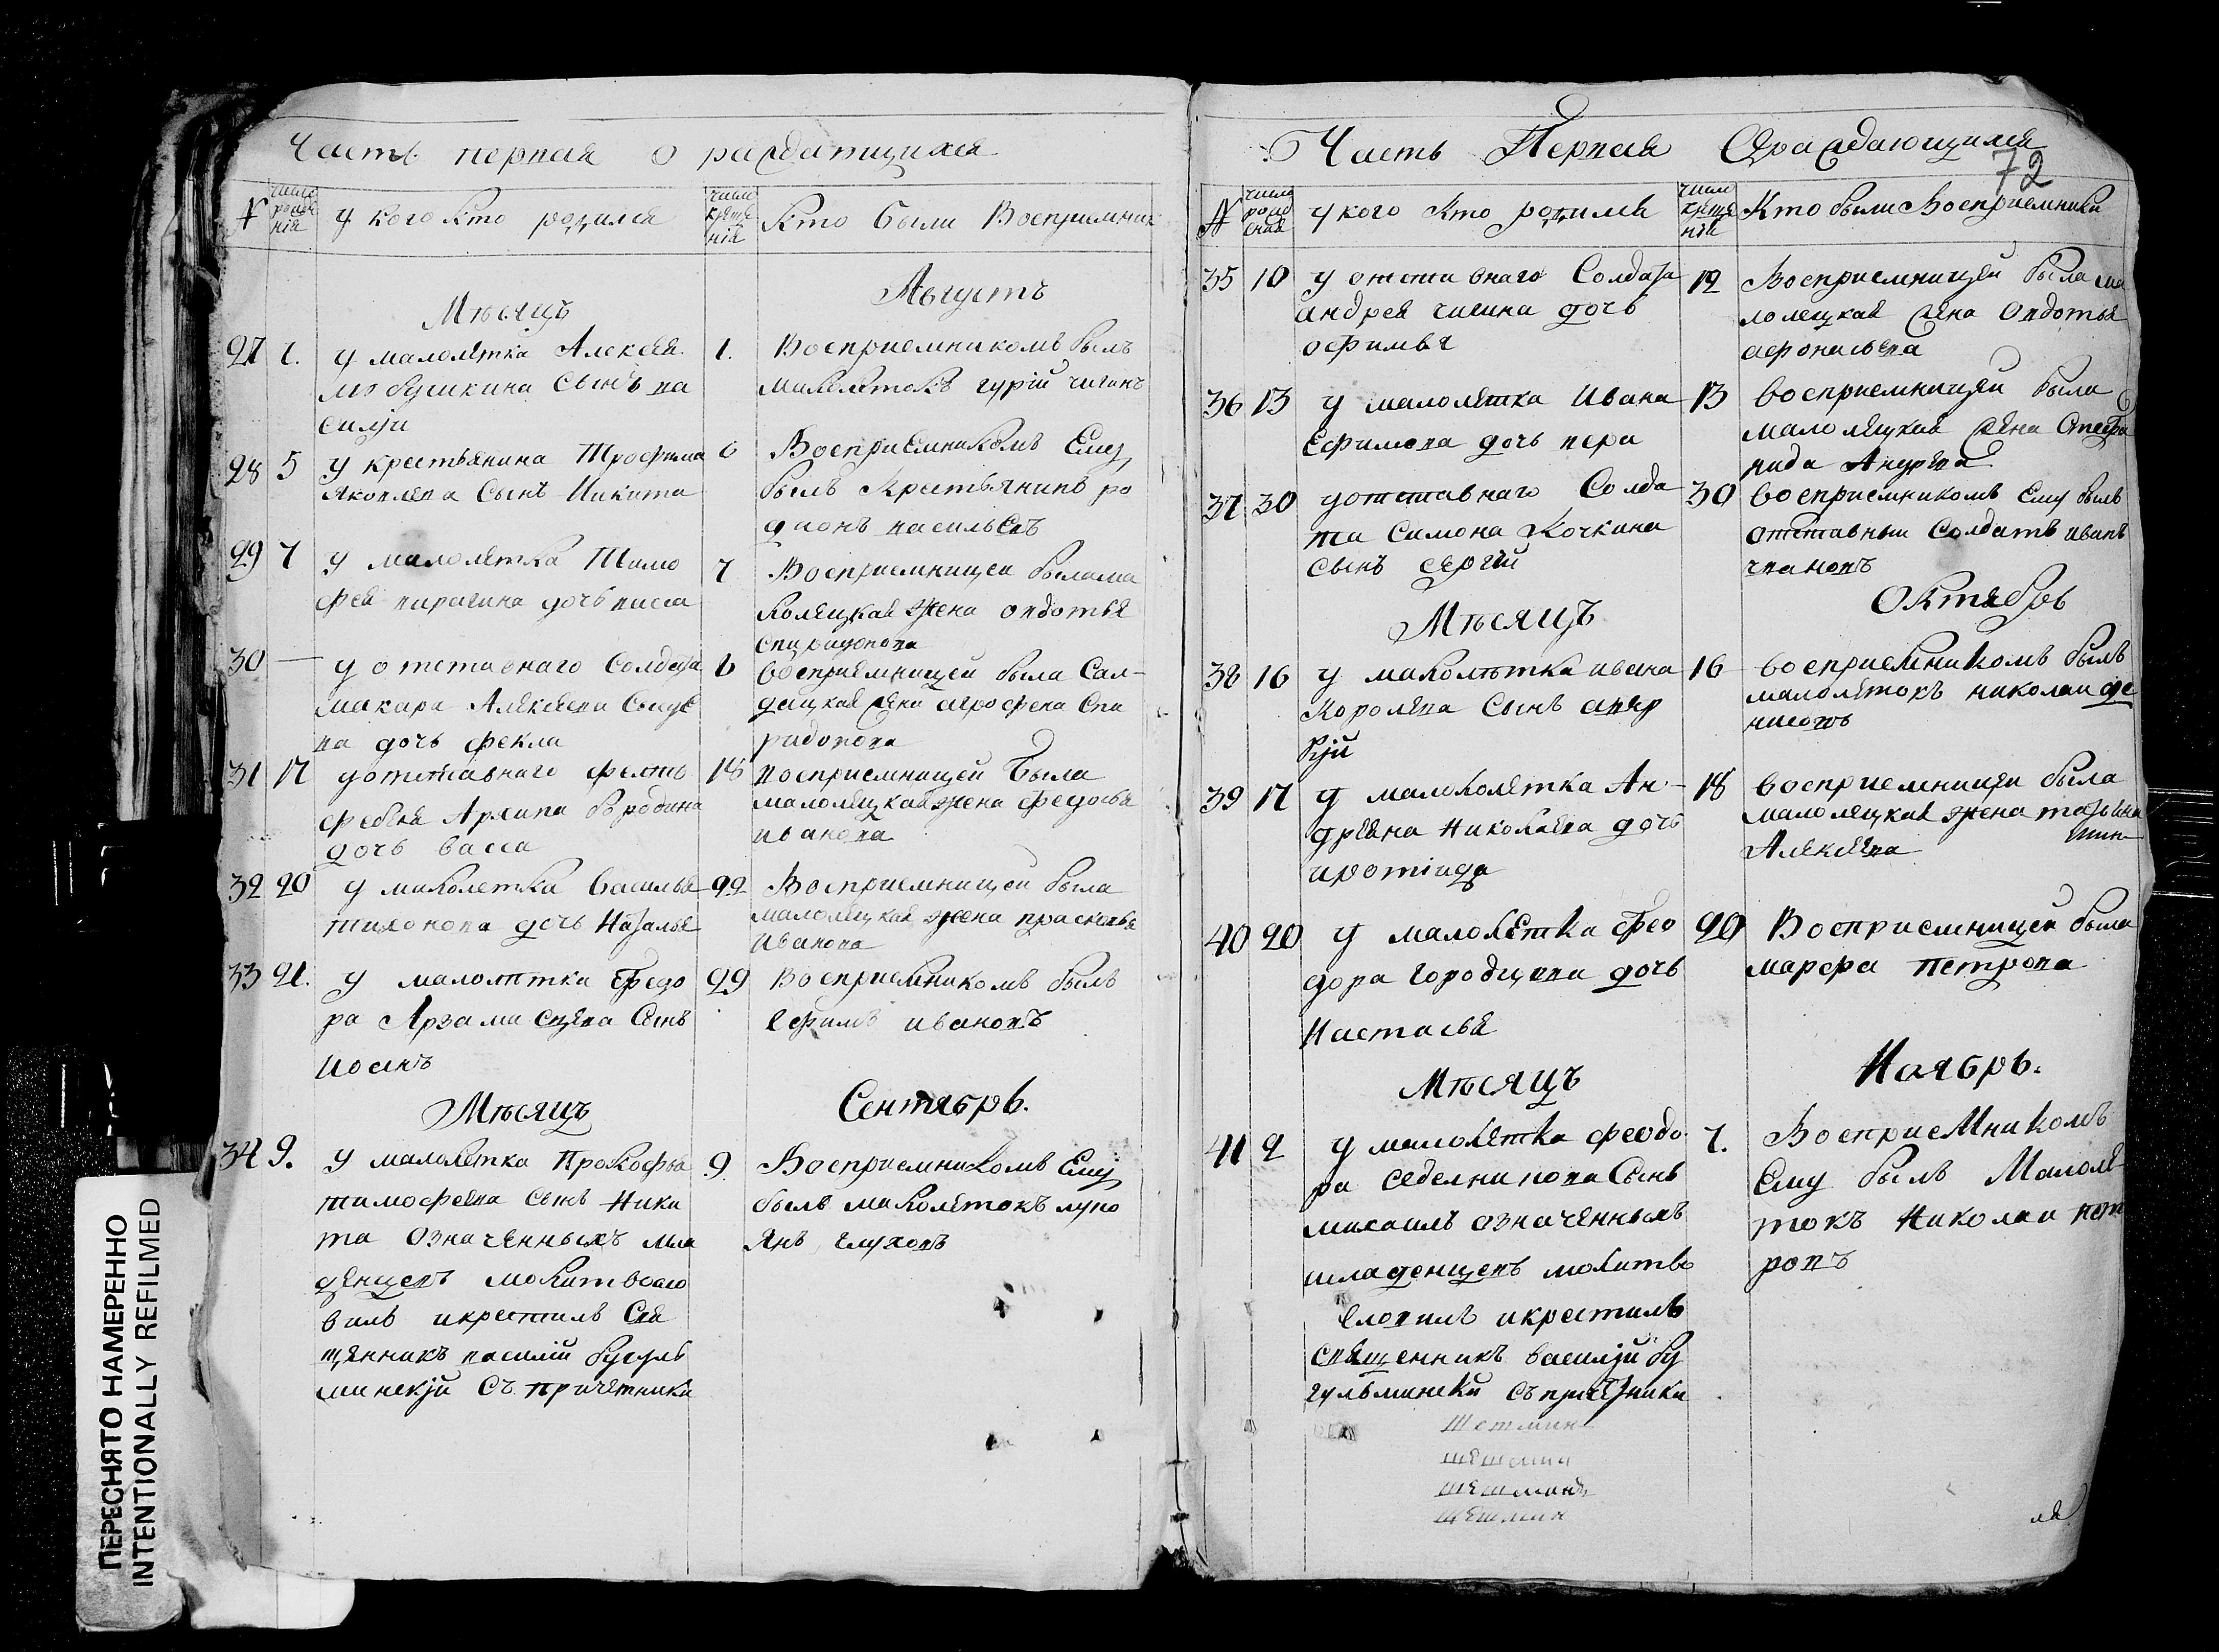 Часть первая о раждающихся
№
число рожде нія
у кого кто родился
число креще нія
Кто были Восприемник
Мѣсяцъ
Августъ
27 1. у малолѣтка Алексѣя
сынъ ва
силіи
1. Восприемникомъ былъ
малолѣтокъ гурій чигинъ
28 5 у крестьянина Трофима
яковлева Сынъ Никита
6 Восприемникомъ Ему
былъ Крестьянинъ ро
дионъ васильевъ
29 7 у малолѣтка Тимо
фея дочь васса
7 Восприемницеи была ма
лолецкая жена овдотья
спиридонова
30 — у отставнаго Солдата
макара Алексѣева
ва дочь фекла
8 восприемницеи была Сал-
дацкая жена агрофена Спи
ридонова
31 17 у отставнаго фелть
фебеля Архипа Бродина
дочь васса
18 восприемницеи была
малолецкая жена федосья
иванова
32 20 у малолетка василья
тихонова дочь Наталья
22 Восприемницеи была
малолецкая жена прасковья
иванова
33 21. у малолѣтка Федо
ра Арзамасцева Сынъ
22 Восприемникомъ былъ
ефимъ ивановъ
Мѣсяцъ
Сентябрь.
34 9. у малолѣтка Прокофья
тимофеева сынъ Ники
та означенныхъ мла
денцевъ молитвосло
вилъ икрестилъ Свя
щенникъ василіи бугуль
минскіи Съ причетники
9. Восприемникомъ Ему
былъ малолѣтокъ луко
янъ глуховъ
Часть Первая О раждающихся
72
№
число рожд ения
у кого кто родился
число креще нія
Кто были Восприемники
35 10 у отставнаго Солдата
андрея чигина дочь
офимья
12 Восприемницеи была ма
лолецкая жена Овдотья
афонасьева
36 13 у малолѣтка Ивана
Ефимова дочь вера
13 восприемницеи была
малолецкая жена Степа
нида Андрева
37 30 у отставнаго Солда
та Симона Кочкина
сынъ сергій
30 восприемникомъ Ему былъ
отставныи Солдатъ иванъ
Мѣсяцъ
Октябрь
38 16 у малолѣтка ивана
Королева Сынъ авер
кіи
16 восприемникомъ былъ
малолѣтокъ николаи де
нисовъ
39 17 у малололетка Ан-
дреяна Николаева дочь
иротіида
18 восприемницеи была
малолецкая жена татьяна
Алексѣева
40 20 у малолѣтка Фео
дора Городцова дочь
Настасья
20 Восприемницеи была
марфа Петрова
Мѣсяцъ
Ноябрь.
41 2 у малолѣтка феодо
ра седелникова Сынъ
михаилъ означенныхъ
младенцевъ молитво
словилъ икрестилъ
священникъ василіи бу
гульмински съ причетники
7. Восприемникомъ
Ему былъ Малолѣ
токъ Николаи пет
ровъ
Шешмин
шешмин
шешминь
шешмин
ля
ПЕРЕСНЯТО НАМЕРЕННО
INTENTIONALLY REFILMED